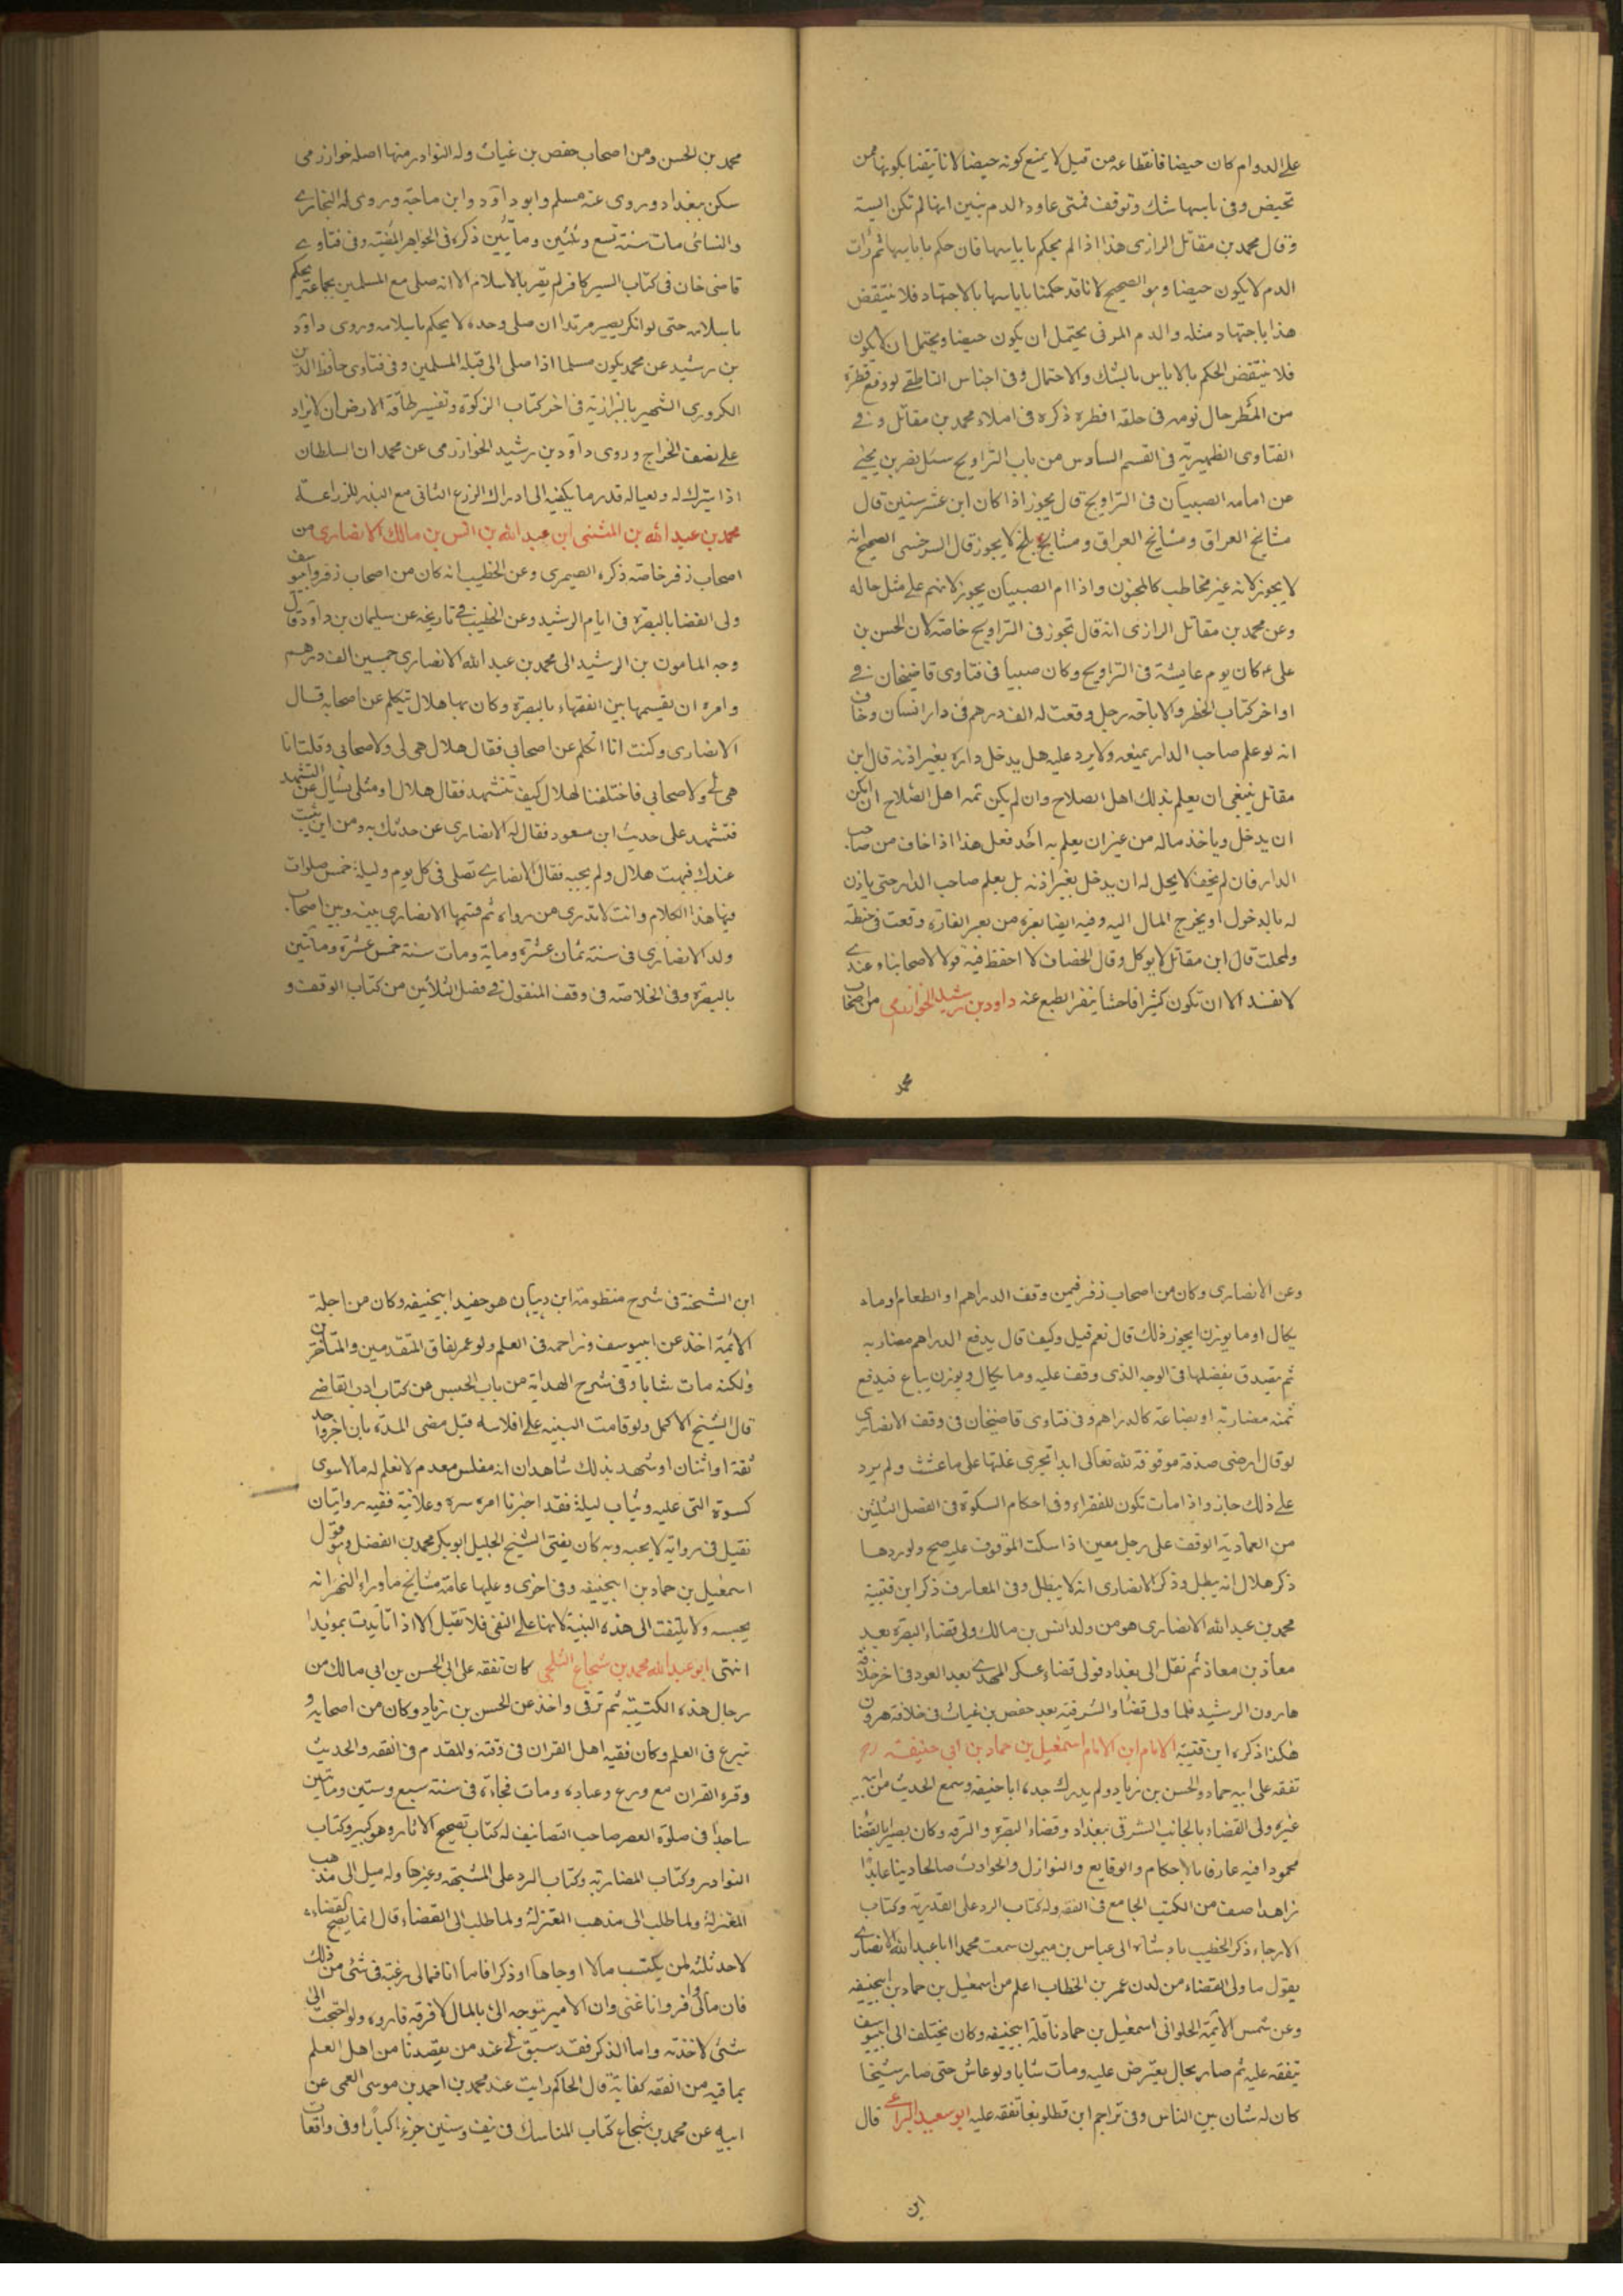 على الدوام كان حيضا فانقطاعه من قبل لا يمنع كونه حيضا لانا تيقنا بكونها ممن
تحيض وفى اياسها شك وتوقف فمتى عاود الدم يتبين انها لم تكن ايسة
وقال محمد بن مقاتل الرازى هذا اذا لم يحكم باياسها فان حكم باياسها ثم رات
الدم لا يكون حيضا وهو الصحيح لانا قد حكمنا باياسها بالاجتهاد فلا ينتقض
هذا باجتهاد مثله والدم المرئى يحتمل ان يكون حيضا ويحتمل ان لا يكون
فلا ينتقض الحكم بالاياس بالشك والاحتمال وفى اجناس الناطفى لو دفع قطرة
من المطر حال نومه فى حلقه افطره ذكره فى املاء محمد بن مقاتل وفى
الفتاوى الظهيرية فى القسم السادس من باب التراويح سئل نصر بن يحيى
عن امامة الصبيان فى التراويح قال يجوز اذا كان ابن عشر سنين قال
مشايخ العراق ومشايخ العراق ومشايخ بلخ لا يجوز قال السرخسى الصحيح انه
لا يجوز لانه غير مخاطب كالمجنون واذا ام الصبيان يجوز لانهم على مثل حاله
وعن محمد بن مقاتل الرازى انه قال تجوز فى التراويح خاصة لان الحسن بن
على كان يوم عايشة فى التراويح وكان صبيا فى فتاوى قاضيخان فى
اواخر كتاب الحظر والاباحة رجل وقعت له الف درهم فى دار انسان وخاف
انه لو علم صاحب الدار يمنعه ولا يرد عليه هل يدخل داره بغير اذنه قال ابن
مقاتل ينبغى ان يعلم بذلك اهل الصلاح وان لم يكن ثمه اهل الصلاح ان امكن
ان يدخل وياخذ ماله من غير ان يعلم به احد فعل هذا اذا خاف من صاحب
الدار فان لم يخف لا يحل له ان يدخل بغير اذنه بل يعلم صاحب الدار حتى ياذن
له بالدخول او يخرج المال اليه وفيه ايضا بعرة من بعر الفارة وقعت فى حنطة
وطحنت قال ابن مقاتل لا يوكل وقال الخصاف لا احفظ فيه قولا لاصحابنا وعندى
لا تفسد الا ان تكون كثيرا فاحشا ينفر الطبع عنه داود بن رشيد الخوارزمى من اصحاب
محمد
محمد بن الحسن ومن اصحاب حفص بن غياث وله النوادر منها اصله خوارزمى
سكن بغداد وروى عنه مسلم وابو داود وابن ماجة وروى له البخارى
والنسائى مات سنة تسع وثلثين ومأتين ذكره فى الجواهر المضية وفى فتاوى
قاضى خان فى كتاب السير كافر لم يقر بالاسلام الا انه صلى مع المسلمين بجماعة يحكم
باسلامه حتى لو انكر يصير مرتدا ان صلى وحده لا يحكم باسلامه وروى داود
بن رشيد عن محمد يكون مسلما اذا صلى الى قبلة المسلمين وفى فتاوى حافظ الدين
الكرورى الشهير بالبزازية فى اخر كتاب الزكوة وتفسير طاقة الارض ان لا يزاد
على نصف الخراج وروى داود بن رشيد الخوارزمى عن محمد ان السلطان
اذا يترك له ولعياله قدر ما يكفيه الى ادراك الزرع الثانى مع البذر للزراعة
محمد بن عبد الله بن المثنى ابن عبد الله بن انس بن مالك الانصارى من
اصحاب زفر خاصة ذكره الصيمرى وعن الخطيب انه كان من اصحاب زفر وابيوسف
ولى القضا بالبصرة فى ايام الرشيد وعن الخطيب فى تاريخه عن سليمان بن داود قال
وجه المامون بن الرشيد الى محمد بن عبد الله الانصارى خمسين الف درهم
وامره ان يقسمها بين الفقهاء بالبصرة وكان بها هلال تيكلم عن اصحابه قال
الانصارى وكنت انا اتكلم عن اصحابى فقال هلال هى لى ولاصحابى وقلت انا
هى لى ولاصحابى فاختلفنا لهلال كيف تتشهد فقال هلال او مثلى يسال عن التشهد
فتشهد على حديث ابن مسعود فقال له الانصارى عن حدثك به ومن اين ثبت
عندك فبهت هلال ولم يجبه فقال الانصارى تصلى فى كل يوم وليلة خمس صلوات
فيها هذا الكلام وانت لا تدرى من رواه ثم قسمها الانصارى بينه وبين اصحابه
ولد الانصارى فى سنة ثمان عشرة ومأية ومات سنة خمس عشرة ومأتين
بالبصرة وفى الخلاصة فى وقف المنقول فى فصل الثلاثين من كتاب الوقف و
وعن الانصارى وكان من اصحاب زفر فيمن وقف الدراهم او الطعام او ما
يكال او ما يوزن ايجوز ذلك قال نعم قيل وكيف قال يدفع الدراهم مضاربه
ثم يتصدق بفضلها فى الوجه الذى وقف عليه وما يكال ويوزن يباع فيدفع
ثمنه مضاربة او بضاعة كالدراهم وفى فتاوى قاضيخان فى وقف الانصارى
لو قال ارضى صدقة موقوفة لله تعالى ابدا تجرى غلتها على ما عشت ولم يرد
على ذلك جاز واذا مات تكون للفقراء وفى احكام السكوة فى الفصل الثلثين
من العمادية الوقف على رجل معين اذا سكت الموقوف عليه صح ولو ردها
ذكر هلال انه يبطل وذكر الانصارى انه لا يبطل وفى المعارف ذكر ابن قتيبة
محمد بن عبد الله الانصارى هو من ولد انس بن مالك ولى قضاء البصرة بعد
معاذ بن معاذ ثم نقل الى بغداد فولى قضاء عسكر المهدى بعد العود فى اخر خلافة
هارون الرشيد فلما ولى قضاء الشرقية بعد حفص بن غياث فى خلافة هرون
هكذا ذكره ابن قتيبة الامام ابن الامام اسمعيل بن حماد بن ابى حنيفة رح
تفقه على ابيه حماد والحسن بن زياد ولم يدرك جده ابا حنيفة وسمع الحديث من ابيه
غيره ولى القضاء بالجانب الشرقى ببغداد وقضاء البصرة والرقه وكان بصيرا بالقضا
محمودا فيه عارفا بالاحكام والوقايع والنوازل والحوادث صالحا دينا عابدا
زاهدا صنف من الكتب الجامع فى الفقه وله كتاب الرد على القدرية وكتاب
الارجاء ذكر الخطيب باسناده الى عباس بن ميمون سمعت محمدا ابا عبد الله الانصارى
يقول ما ولى القضاء من لدن عمر بن الخطاب اعلم من اسمعيل بن حماد بن ابيحنيفه
وعن شمس الائمة الحلوانى اسمعيل بن حماد نافلة ابيحنيفه وكان يختلف الى ابيوسف
يتفقه عليه ثم صار بحال يعترض عليه ومات شابا ولو عاش حتى صار شيخا
كان له شان بين الناس وفى تراجم ابن قطلوبغا تفقه عليه ابو سعيد البراعى قال
ابن
ابن الشحنة فى شرح منظومة ابن وهبان هو حفيد ابيحنيفه وكان من اجلة
الائمة اخذ عن ابيوسف وزاحمه فى العلم ولو عمر لفاق المتقدمين والمتأخرين
ولكنه مات شابا وفى شرح الهداية من باب الحبس من كتاب ادب القاضى
قال الشيخ الاكمل ولو قامت البينه على افلاسه قبل مضى المدة بان اخبر واحد
ثقة او اثنان او شهد بذلك شاهدان انه مفلس معدم لا نعلم له مالا سوى
كسوة التى عليه وثياب ليلة فقد اخبرنا امره سره وعلانية ففيه روايتان
تقبل فى رواية لا يحبه وبه كان يفتى الشيخ الجليل ابو بكر محمد بن الفضل وهو قول
اسمعيل بن حماد بن ابيحنيفه وفى اخرى وعليها عامة مشايخ ماوراء النهر انه
يحبسه ولا يلتفت الى هذه البينة لانها على النفى فلا تقبل الا اذا تايدت بمويد
انتهى ابو عبد الله محمد بن شجاع الثلجى كان تفقه على ابى الحسن بن ابى مالك من
رجال هذه الكتيبة ثم ترقى واخذ عن الحسن بن زياد وكان من اصحابه و
تبرع فى العلم وكان فقيه اهل القران فى وقته والمقدم فى الفقه والحديث
وقرءة القران مع ورع وعبادة ومات فجاءة فى سنة سبع وستين ومأتين
ساجدا فى صلوة العصر صاحب التصانيف له كتاب تصحيح الاثار وهو كبير وكتاب
النوادر وكتاب المضاربة وكتاب الرد على المشبهه وغيرها وله ميل الى مذهب
المغتزلة ولما طلب الى مذهب المعتزلة ولما طلب الى القضاء قال انما يصح القضاء
لاحد ثلثة لمن يكتسب مالا او جاها او ذكرا فاما انا فمالى رغبة فى شئى من ذلك
فان مالى وافر وانا غنى وان الامير يتوجه الى بالمال لا فرقه ولو احتجت الى
شئى لاخذته واما الذكر فقد سبق لى عند من يقصدنا من اهل العلم
بما فيه من الفقه كفاية قال الحاكم رايت عند محمد بن احمد بن موسى العمى عن
ابيه عن محمد بن شجاع كتاب المناسك فى نيف وستين جزءا كبارا وفى واقعات